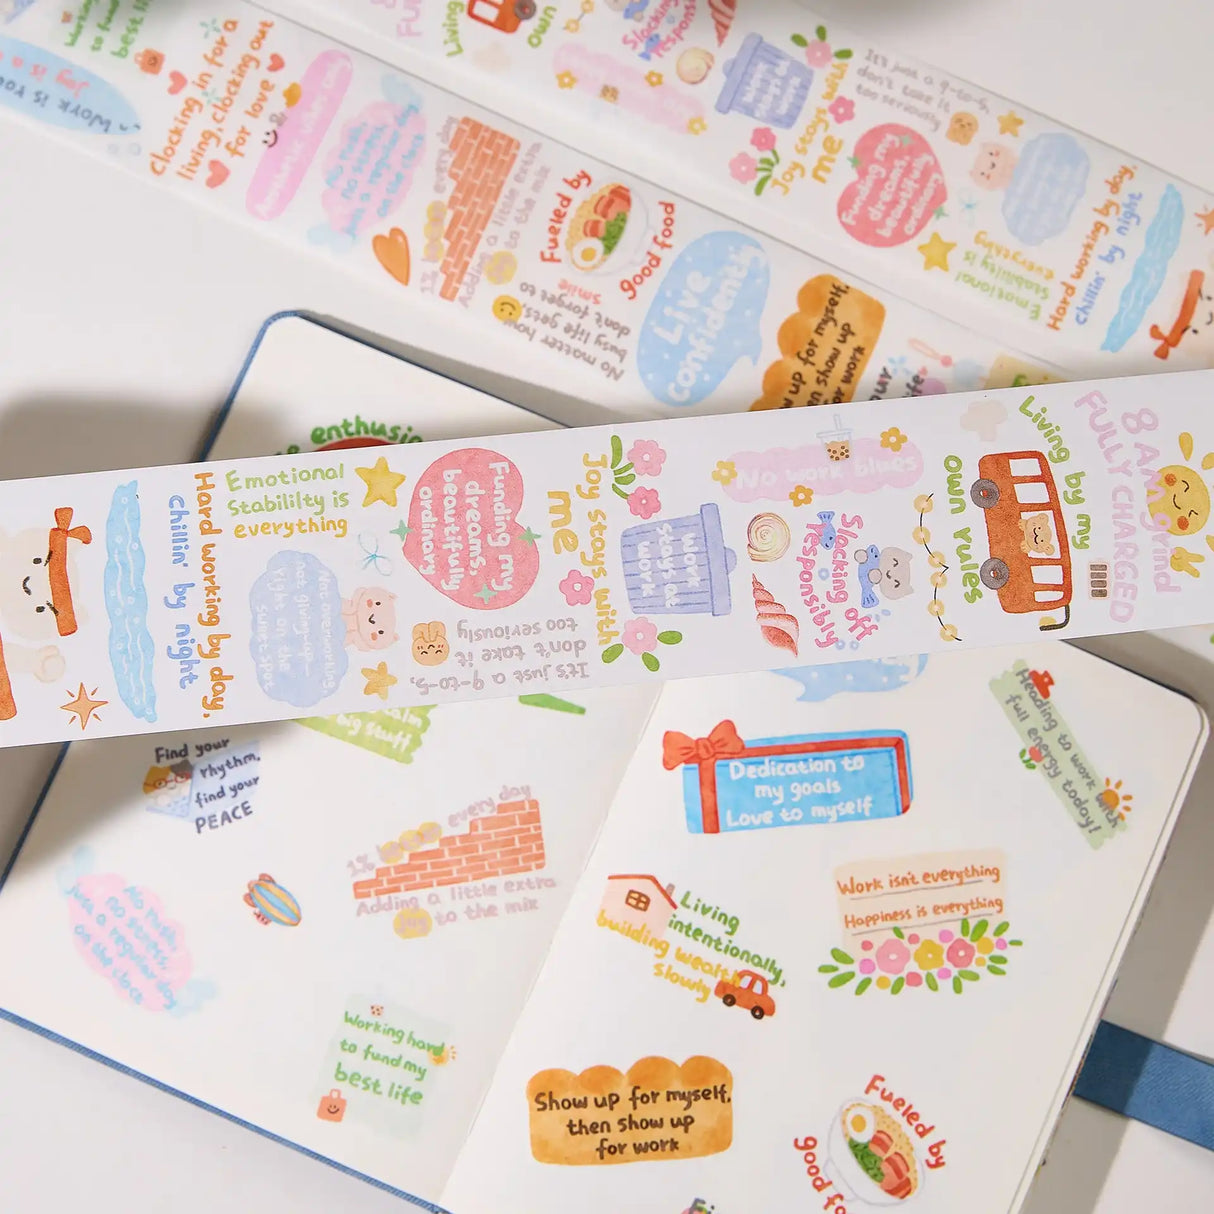 Working
to fund
best li
Work is
Joy is a
Clocking in for a
living, clocking out
for love
1%
every day
Adding a little extra
to the mix
Fueled by
good food
No matter how
busy life gets,
don't forget to
smile
Live
confidently
up for myself,
then show up
for work
FU
Living
own
Slacking
Responsi
Work
stays at
work
Joy stays with
me
It's just a 9-to-5,
don't take it
too seriously
Funding my
dreams,
beautifully
ordinary
Emotional
stability is
everything
Hard working by day,
chillin' by night
enthusi
Hard working by day,
chillin' by night
Emotional
Stability is
everything
Not overworking
not giving up
right on the
sweet spot
Funding my
dreams,
beautifully
ordinary
It's just a 9-to-5,
don't take it
too seriously
Joy stays with
me
Work
stays at
work
No work blues
Slacking off
Responsibly
Living by my
own rules
8 AM grind
FULLY CHARGED
calm
big stuff
Find your
rhythm,
find your
PEACE
1%
every day
Adding a little extra
joy to the mix
No rush,
no stress,
just a regular day
on the clock
Working hard
to fund my
best life
Dedication to
my goals
Love to myself
Heading to work with
full energy today!
Living
intentionally,
building wealth
slowly
Work isn't everything
Happiness is everything
Show up for myself,
then show up
for work
Fueled by
good fo